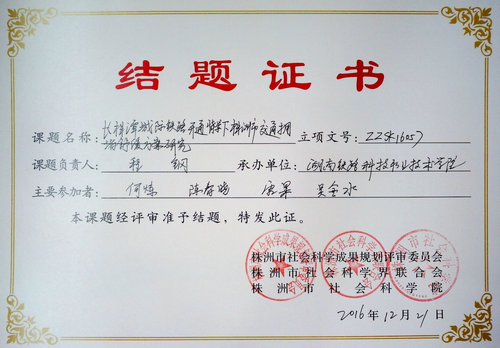 结题证书
课题名称:长株潭城际铁路开通情况下株洲市交通拥
堵舒缓方案研究 立项文号:ZZSK16057
课题负责人:程钢 承办单位:湖南铁路科技职业技术学院
主要参加者:何炼 陈春鸣 唐果 吴金水
本课题经评审准予结题,特发此证。
株洲市社会科学成果规划评审委员会
株洲市社会科学界联合会
株洲市社会科学院
2016年12月21日